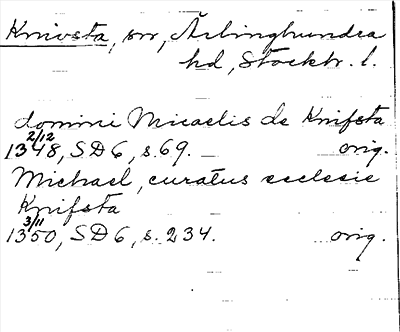 Knivsta, sn, Ärlinghundra
hd, Stockh. l.
domini Micaelis de Knifsta
2/12
1348, SD 6, s. 69. orig.
Michael, curatus ecclesie
Knifsta
3/11
1350, SD 6, s. 234. orig.